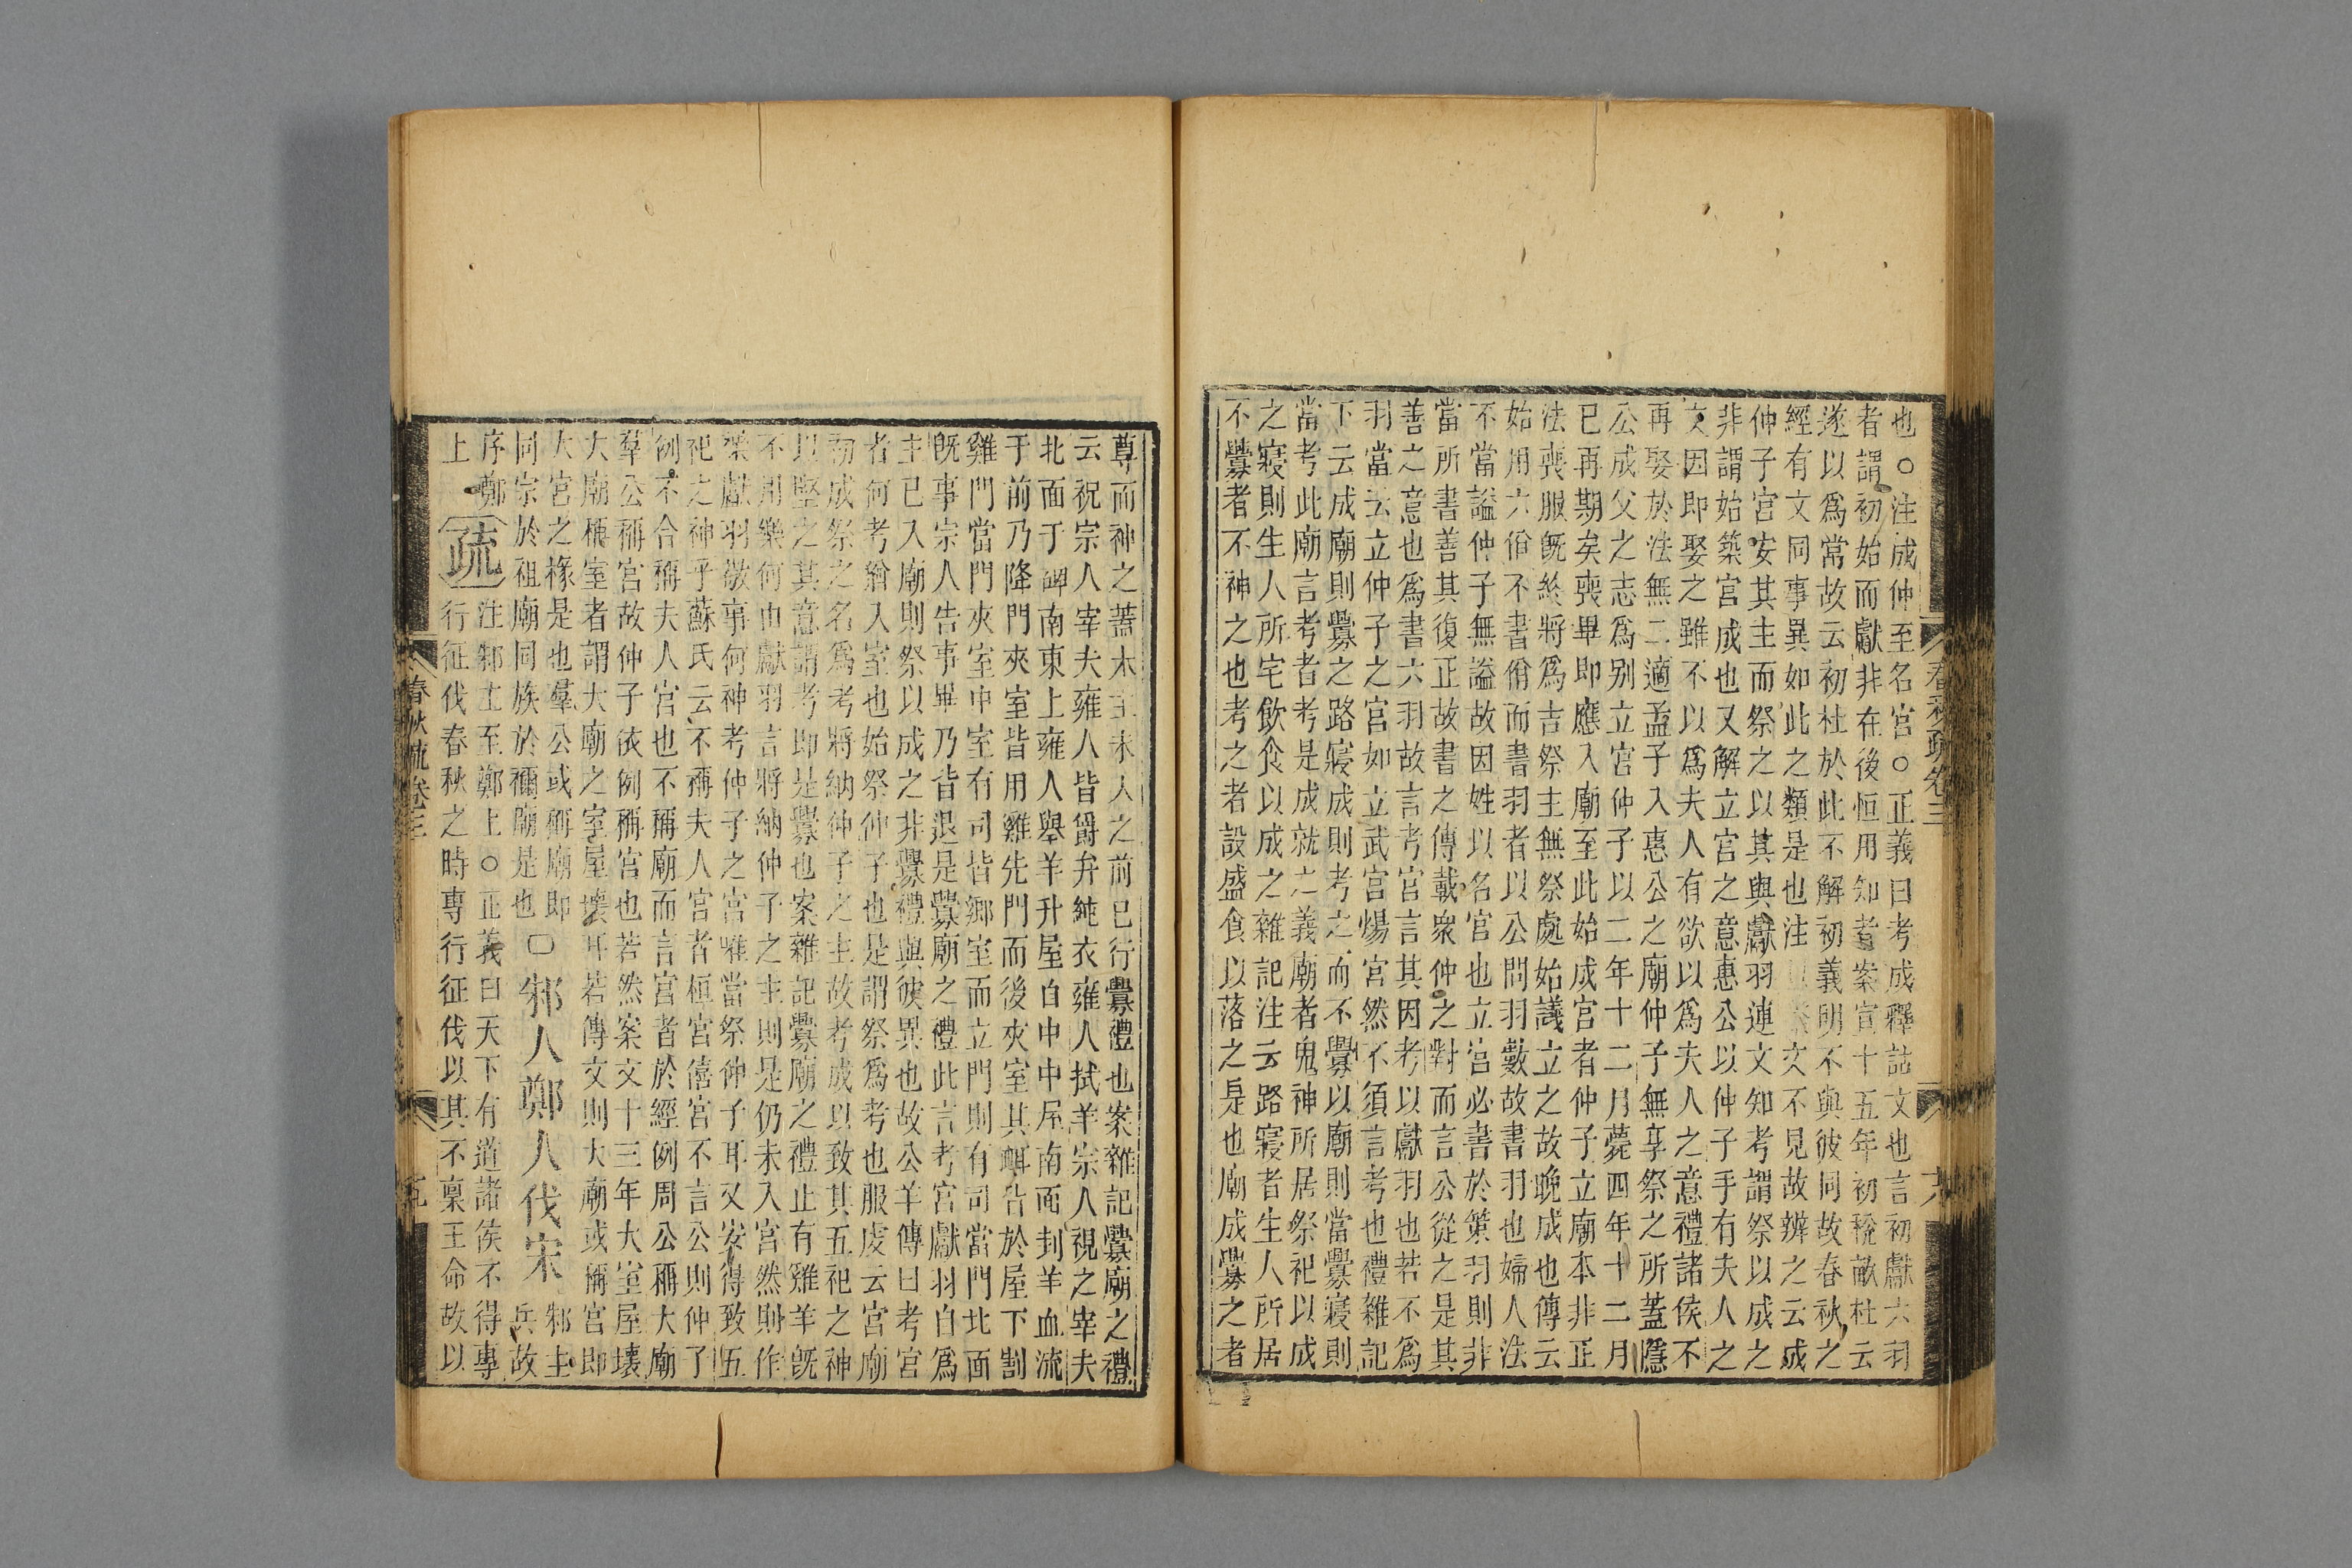 也○注成仲至名宮○正義曰考成釋詁文也言初獻六羽
者謂初始而獻非在後恒用知者案宣十五年初稅畝杜云
遂以爲常故云初杜於此不解初義明不與彼同故春秋之
經有文同事異如此之類是也注文不見故辨之云成
仲子宮安其主而祭之以其與獻羽連文知考謂祭以成之
非謂始築宮成也又解立宮之意惠公以仲子手有夫人之
文因即娶之雖不以爲夫人有欲以爲夫人之意禮諸侯不
再娶於法無二適孟子入惠公之廟仲子無享祭之所蓋隱
公成父之志爲別立宮仲子以二年十二月薨四年十二月
已再期矣喪畢即應入廟至此始成宮者仲子立廟本非正
法喪服既終將爲吉祭主無祭處始議立之故晚成也傳云
始用六佾不書佾而書羽者以公問羽數故書羽也婦人法
不當謚仲子無謚故因姓以名宮也立宮必書於策羽則非
當所書善其復正故書之傳載衆仲之對而言公從之是其
善之意也爲書六羽故言考宮言其因考以獻羽也若不爲
羽當云立仲子之宮如立武宮煬宮然不須言考也禮雜記
下云成廟則釁之路寢成則考之而不釁以廟則當釁寢則
當考此廟言考者考是成就之義廟者鬼神所居祭祀以成
之寢則生人所宅飲食以成之雜記注云路寢者生人所居
不釁者不神之也考之者設盛食以落之是也廟成釁之者
春秋疏卷三
尊而神之蓋木主未入之前已行釁禮也案雜記釁廟之禮
云祝宗人宰夫雍人皆爵弁純衣雍人拭羊宗人視之宰夫
北面于碑南東上雍人舉羊升屋自中中屋南面刲羊血流
于前乃降門夾室皆用雞先門而後夾室其衈皆於屋下割
雞門當門夾室中室有司皆鄉室而立門則有司當門北面
既事宗人告事畢乃皆退是釁廟之禮此言考宮獻羽自爲
主已入廟則祭以成之非釁禮與彼異也故公羊傳曰考宮
者何考猶入室也始祭仲子也是謂祭爲考也服虔云宮廟
初成祭之名爲考將納仲子之主故考成以致其五祀之神
以堅之其意謂考即是釁也案雜記釁廟之禮止有雞羊既
不用樂何由獻羽言將納仲子之主則是仍未入宮然則作
樂獻羽敬事何神考仲子之宮唯當祭仲子耳又安得致五
祀之神乎蘇氏云不稱夫人宮者桓宮僖宮不言公則仲子
例不合稱夫人宮也不稱廟而言宮者於經例周公稱大廟
羣公稱宮故仲子依例稱宮也若然案文十三年大室屋壞
大廟稱室者謂大廟之室屋壞耳若傳文則大廟或稱宮即
大宮之椽是也羣公或稱廟即
同宗於祖廟同族於禰廟是也○邾人鄭人伐宋邾主兵故
序鄭上疏注邾主至鄭上○正義曰天下有道諸侯不得專
行征伐春秋之時專行征伐以其不稟王命故以
春秋疏卷三